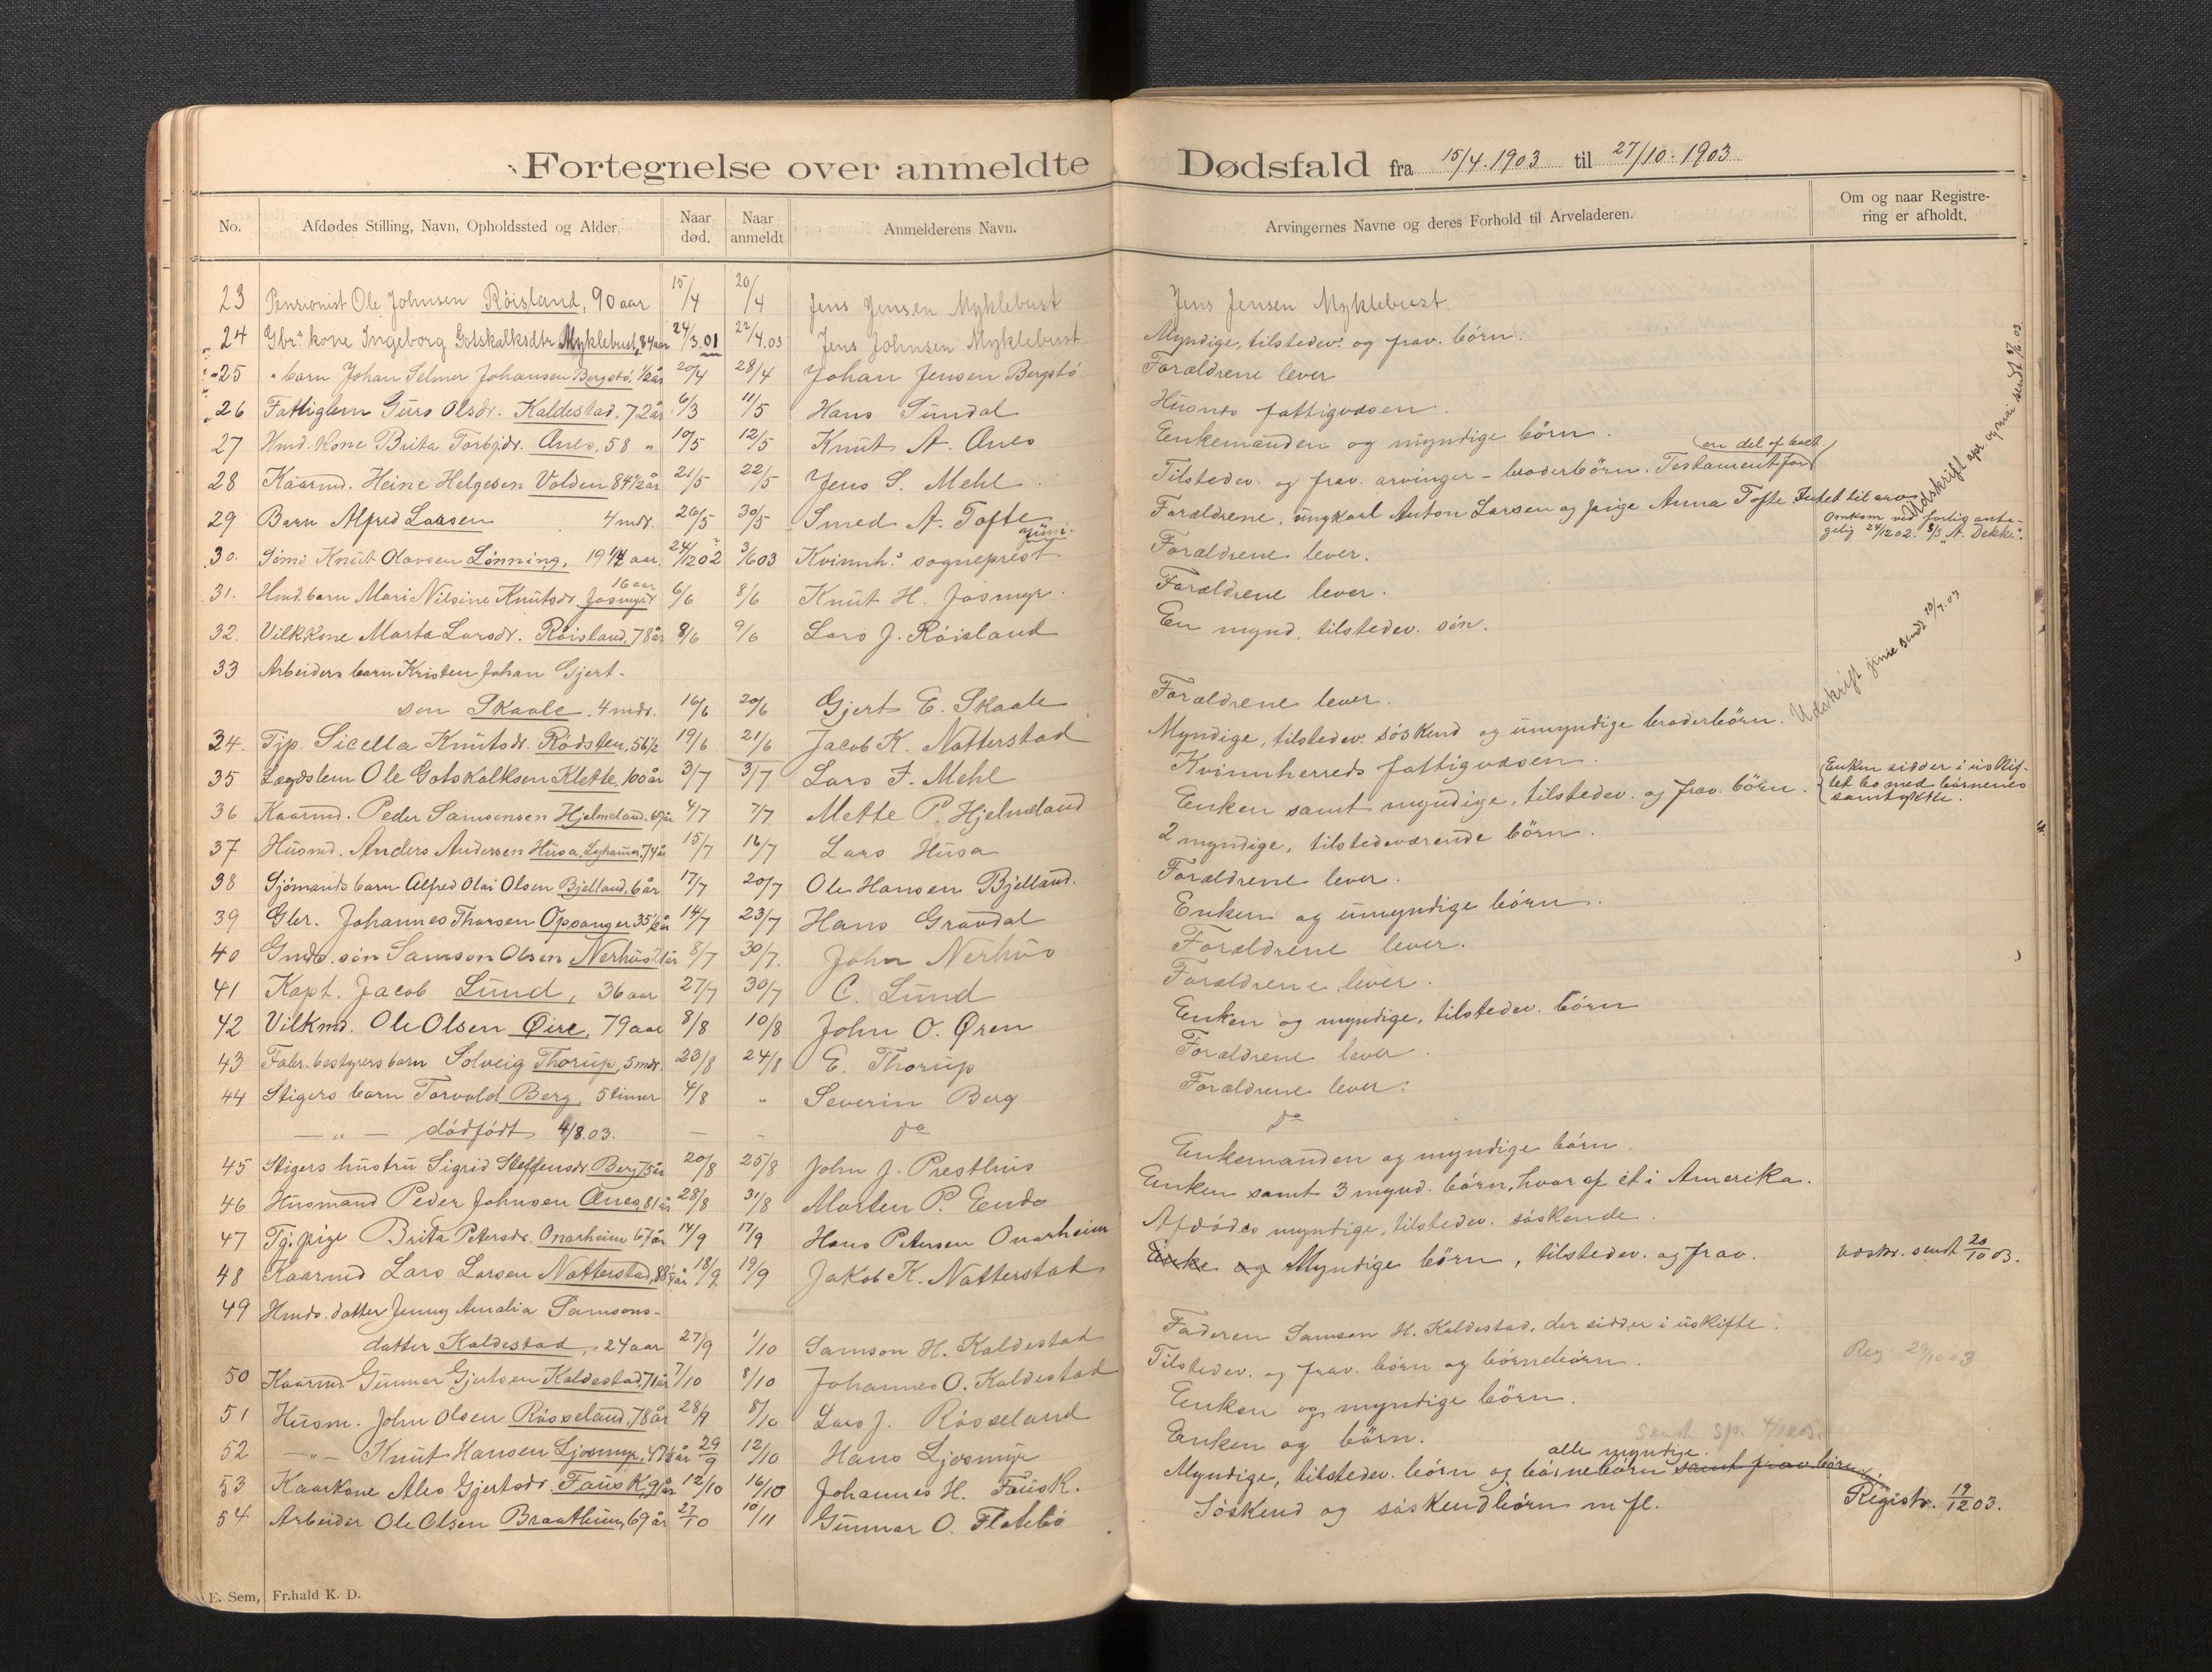 Fortegnelse over anmeldte Dødsfald fra 15/4.1903 til 27/10.1903
No. Afdødes Stilling, Navn, Opholdssted og Alder. Naar død. Naar anmeldt Anmelderens Navn. Arvingernes Navne og deres Forhold til Arveladeren. Om og naar Registrering er afholdt.
23 Pensionist Ole Johnsen Røisland, 90 aar 15/4 20/4 Jens Jensen Myklebust Jens Jensen Myklebust
24 Gbr.s kone Ingeborg Gotskalksdtr Myklebust, 84 aar 24/3.01 22/4.03 Jens Johnsen Myklebust Myndige, tilstedev. og frav. börn.
25 " barn Johan Selmer Johansen Bergstö, 1/2 år 20/4 28/4 Johan Jensen Bergstö Forældrene lever
26 Fattiglem Guro Olsdr. Kaldestad, 72 år 6/3 11/5 Hans Sundal Husnes fattigvæsen.
27 Hmd. Kone Brita Torbjdr. Ænes, 58 " 10/5 12/5 Knut A. Ænes Enkemanden og myndige börn.
28 Kaarmd. Heine Helgesen Volden 84 1/2 år 21/5 22/5 Jens S. Mehl Tilstedev. og frav. arvinger - broderbörn. Testament for (en del af boet.)
29 Barn Alfred Larsen 4 mdr. 26/5 30/5 Smed A. Tofte Forældrene, ungkarl Anton Larsen og pige Anna Tofte Intet til arv
30. Sömd Knut Olavsen Lönning, 19 1/4 aar. 24/12 02 3/6 03 Kvinnh.s sogneprest Forældrene lever. Omkom ved forlig antagelig 24/12 02. S/S "A. Dekke".
juni.
Udskrift apr. og mai sendt
31. Hmd. barn Mari Nilsine Knutsdr. Josmyr 16 aar 6/6 8/6 Knut H. Josmyr. Forældrene lever.
32. Vilkkone Marta Larsdr. Röisland, 78 år 8/6 9/6 Lars J. Röisland En mynd. tilstedev. sön.
33 Arbeiders barn Kristen Johan Gjert-
sen Skaale, 4 mdr. 16/6 20/6 Gjert E. Skaale Forældrene lever.
34. Tjp. Sicella Knutsdr. Rödsten, 56 1/2 19/6 21/6 Jacob K. Natterstad Myndige, tilstedev. söskend og umyndige broderbörn. Udskrift junie sendt 10/7.03
35 Lægdslem Ole Gotskalksen Klette, 100 år 3/7 3/7 Lars J. Mehl Kvinnherreds fattigvæsen.
36 Kaarmd. Peder Samsonsen Hjelmeland. 69 år 4/7 7/7 Mette P. Hjelmeland Enken samt myndige, tilstedev. og frav. börn. Enken sidder i uskiftet bo med börnenes samtykke.
37 Husmd. Anders Andersen Husa, 74 år 15/7 16/7 Lars Husa 2 myndige, tilstedeværende börn.
38 Sjömands barn Alfred Olai Olsen Bjelland, 6 år 17/7 20/7 Ole Hansen Bjelland. Forældrene lever.
39 Gbr. Johannes Thorsen Opsanger 35 1/2 år 14/7 23/7 Hans Gravdal Enken og umyndige börn.
40 Gmds. sön Samson Olsen Nerhus 21 år 8/7 30/7. John Nerhus Forældrene lever.
41 Kapt. Jacob Lund, 36 aar 27/7 30/7 C. Lund Forældrene lever.
42 Vilkmd. Ole Olsen Øire, 79 aar 8/8 10/8 John O. Øren Enken og myndige, tilstedev. börn
43 Fabr. bestyrers barn Solveig Thorup, 5 mdr. 23/8 24/8 E. Thorup Forældrene lever.
44 Stigers barn Torvald Berg, 5 timer 4/8 " Severin Berg Forældrene lever.
— " — dödfödt 4/8.03. — — do do
45 Stigers hustru Sigrid Steffensdr. Berg 75 år 20/8 25/8 John J. Presthus Enkemanden og myndige börn.
46 Husmand Peder Johnsen Ænes, 81 år 28/8 31/8 Morten P. Ends Enken samt 3 mynd. börn, hvoraf ét i Amerika.
47 Tj. pige Brita Petersdr. Onarheim 67 år 14/9 17/9 Hans Petersen Onarheim Afdödes myndige, tilstedev. söskende.
48 Kaarmd Lars Larsen Natterstad, 88 1/2 år 18/9 19/9 Jakob K. Natterstad Enke og Myndige börn, tilstedev. og frav. sendt 20/10 03.
49 Hmds. datter Jenny Amalia Samsons-
datter Kaldestad, 24 aar 27/9 1/10 Samson H. Kaldestad Faderen Samson H. Kaldestad, der sidder i uskifte.
50 Kaarmd. Gunnar Gjertsen Kaldestad, 71 år 7/10 8/10 Johannes O. Kaldestad Tilstedev. og frav. börn og börnebörn. Reg. 29/10 03
51 Husm. John Olsen Rösseland, 78 år 28/9 8/10 Lars J. Rösseland Enken og myndige börn.
52 — " — Knut Hansen Ljosmyr, 47 1/2 år 29/9 12/10 Hans Ljosmyr Enken og börn.
53 Kaarkone Ales Gjertsdr Fausk, år 12/10 16/10 Johannes H. Fausk. Myndige, tilstedev. börn og börnebörn alle myndige. samt frav. börn
54 Arbeider Ole Olsen Braathun, 69 år 27/10 10/11 Gunnar O. Flatebö Söskend og söskendbörn m fl. Registr. 19/12 03.
E. Sem, Fr.hald K. D.